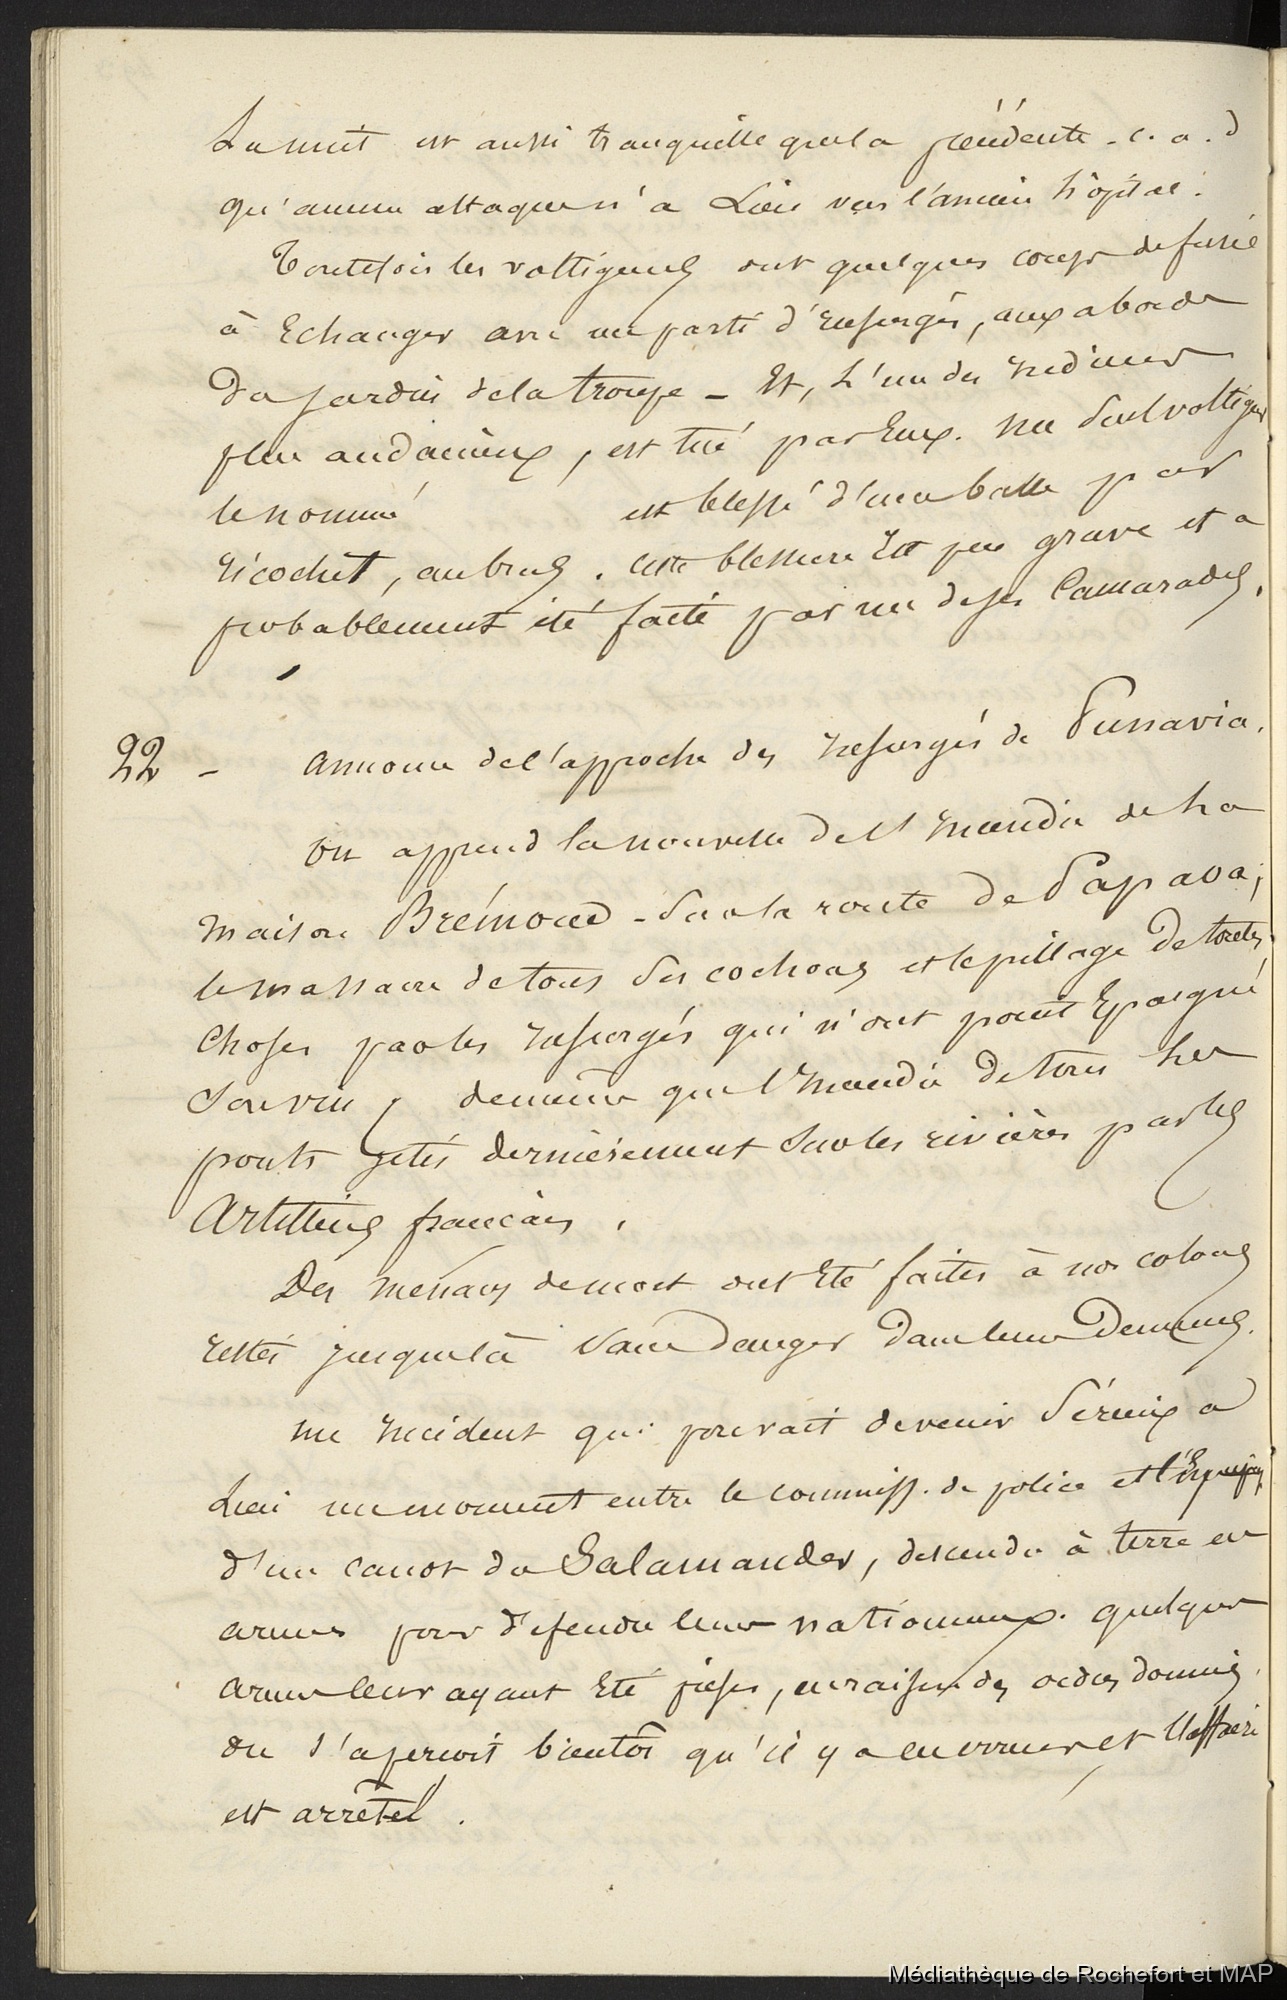 La nuit est aussi tranquille que la précédente - c. a. d
qu'aucune attaque n'a Lieu vers l'ancien hôpital.
Toutefois les voltigeurs ont quelques coups de fusil
à Echanger avec un parti d'insurgés, aux abords
du jardin de la troupe - Et, L'un des indiens
plus audacieux, est tué par Eux. un seul voltigeur
le nommé est blessé d'une balle par
ricochet, au bras. cette blessure Est peu grave et a
probablement été faite par un de ses Camarades.
22 - annonce de l'approche des insurgés de Punavia.
on apprend la nouvelle de l'incendie de La
maison Brémond - sur la route de Papava;
le massacre de tous ses cochons et le pillage de toutes
choses par les insurgés qui n'ont point Epargné
son vin; de même que l'incendie de tous les
ponts jetés dernièrement sur les rivières par les
Artilleurs français.
Des menaces de mort ont Eté faites à nos colons
restés jusque là sans danger dans leurs demeures.
un incident qui pouvait devenir sérieux a
Lieu un moment entre le commiss. de police et l'équipage
d'un canot du Salamander, descendu à terre en
armes pour défendre leurs nationaux. quelques
armes leur ayant Eté prises, en raison des ordres donnés,
on s'aperçoit bientôt qu'il y a eu erreur et l'affaire
est arrêtée.
Médiathèque de Rochefort et MAP